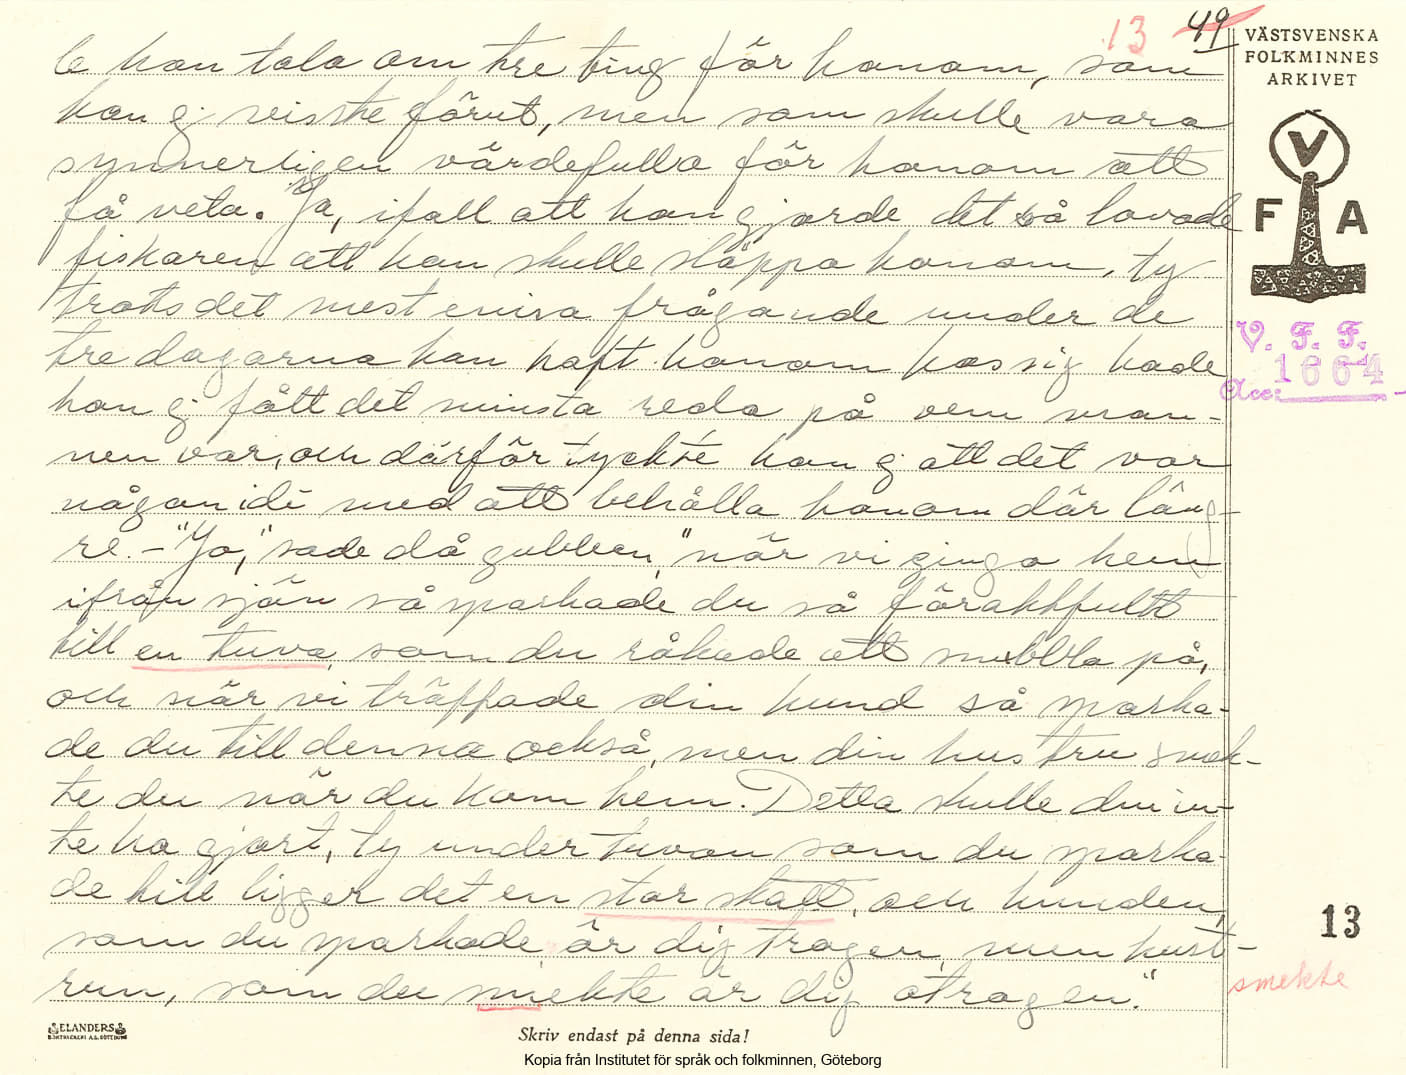 13 49
VÄSTSVENSKA
FOLKMINNES
ARKIVET
V
F A
V. F. F.
Acc: 1664
le han tala om tre ting för honom, som
han ej visste förut, men som skulle vara
synnerligen värdefulla för honom att
få veta. Ja, ifall att han gjorde det så lovade
fiskaren att han skulle släppa honom, ty
trots det mest envisa frågande under de
tre dagarna han haft honom hos sig hade
han ej fått det minsta reda på vem man-
nen var, och därför tyckte han ej att det var
någon idé med att behålla honom där läng-
re. – "Jo," sade då gubben, "när vi gingo hem
ifrån sjön så sparkade du så föraktfullt
till en tuva, som du råkade att snubbla på,
och när vi träffade din hund så sparka-
de du till denna också, men din hustru smek-
te du när du kom hem. Detta skulle du in-
te ha gjort, ty under tuvan som du sparka-
de till ligger det en stor skatt, och hunden,
som du sparkade är dig trogen, men hust-
run, som du smekte är dig otrogen."
13
smekte
ELANDERS
Skriv endast på denna sida!
Kopia från Institutet för språk och folkminnen, Göteborg